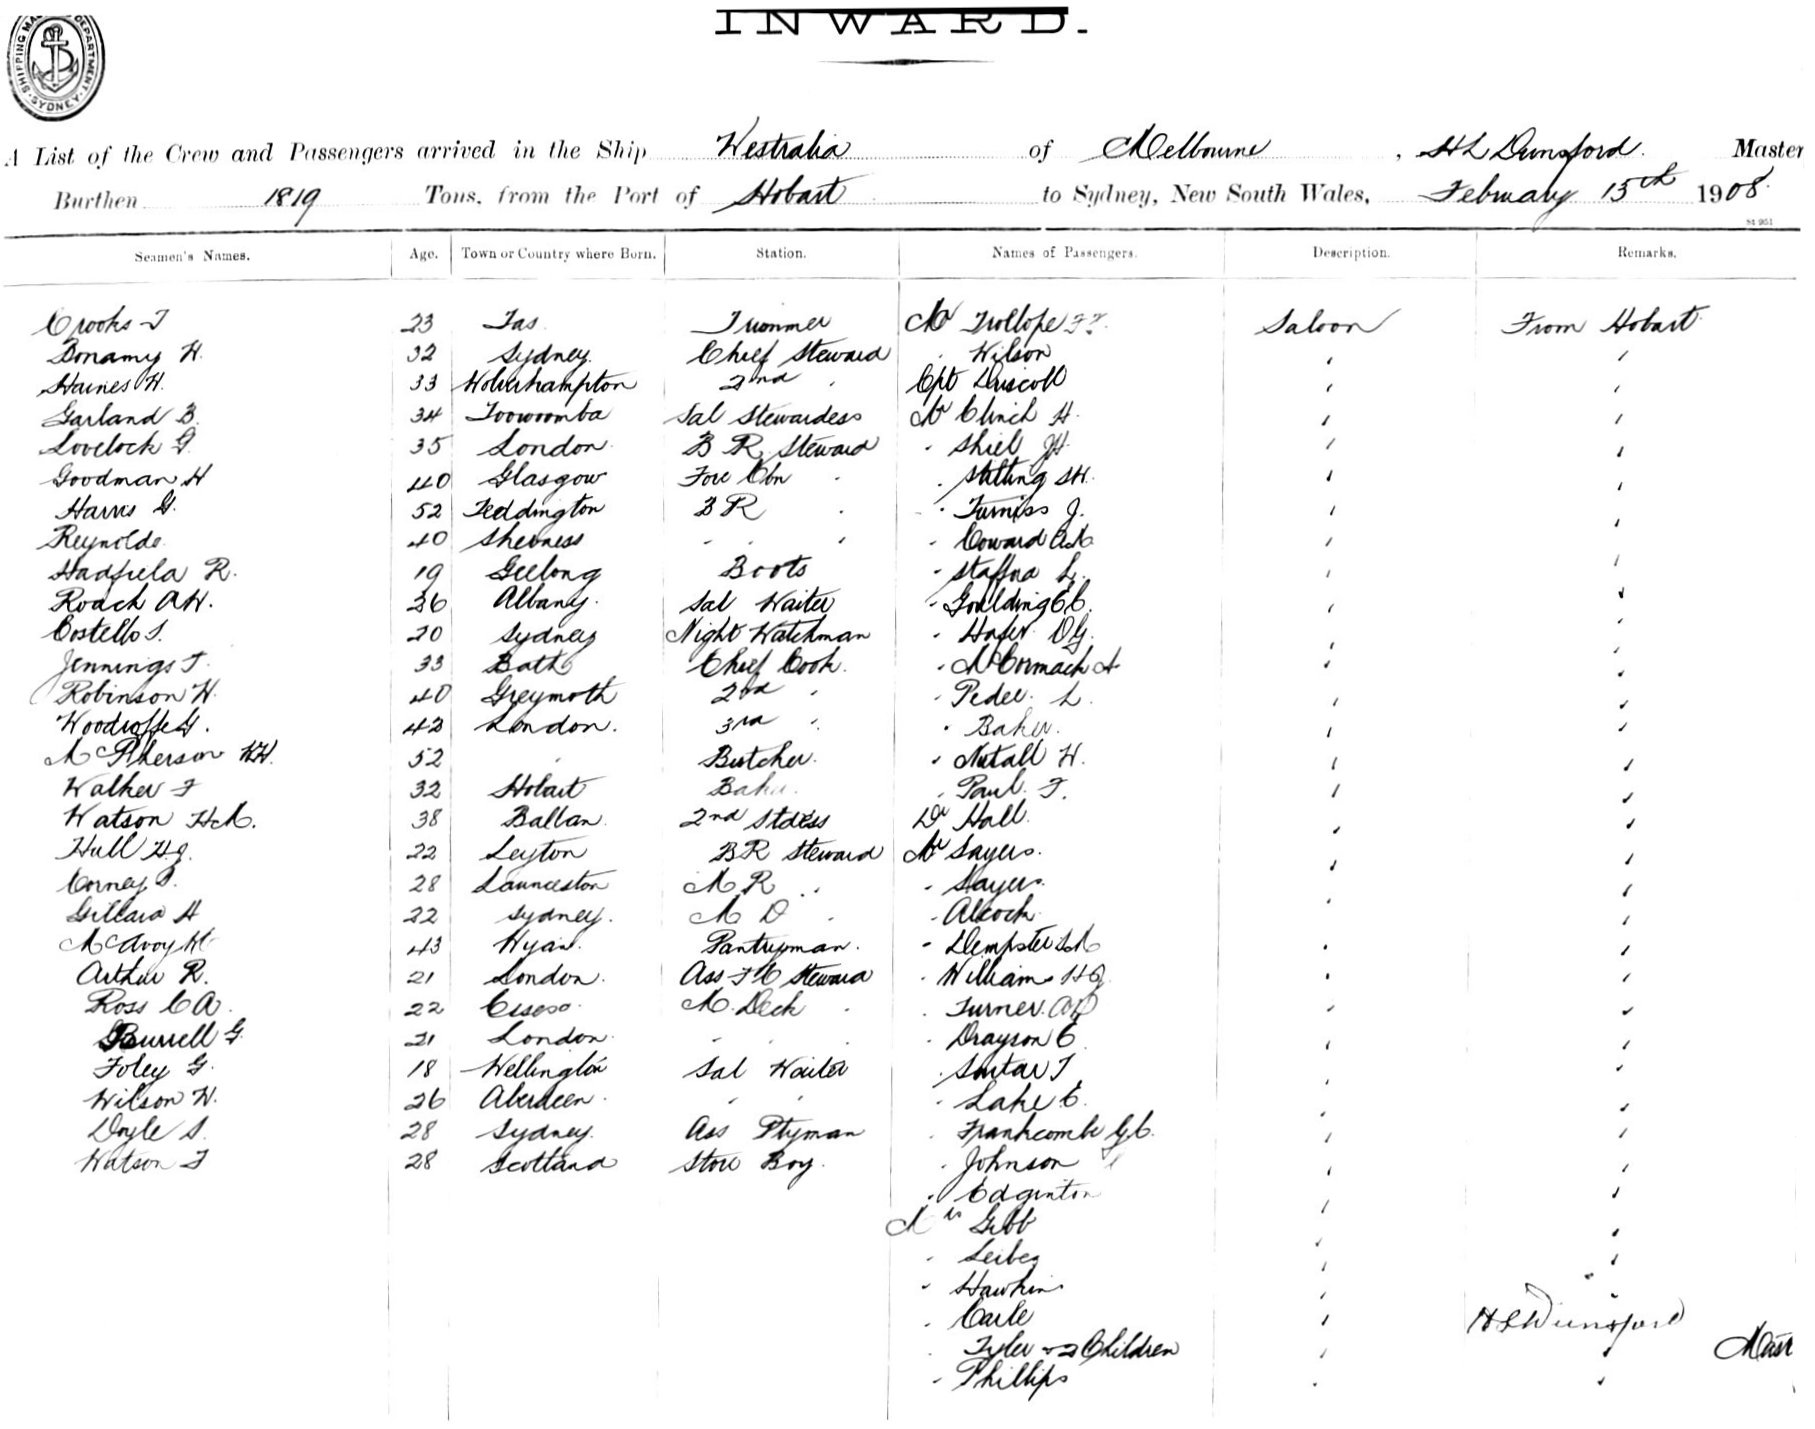 SHIPPING MA DEPARTMENT. SYDNEY
INWARD.
A List of the Crew and Passengers arrived in the Ship Westralia of Melbourne, H L Dunsford. Master
Burthen 1819 Tons, from the Port of Hobart to Sydney, New South Wales, February 15th 1908.
St 951
Seamen's Names. Age. Town or Country where Born. Station. Names of Passengers. Description. Remarks.
Crooks T 23 Tas. Trimmer Mr Trollope Saloon From Hobart
Bonamy H. 32 Sydney. Chief Steward " Wilson " "
Haines H. 33 Wolverhampton 2nd " Cpt Driscoll " "
Garland B. 34 Toowoomba Sal Stewardess Mr Clinch H. " "
Lovelock G. 35 London. B R Steward " Shiel " "
Goodman H 40 Glasgow Fore Cbn " " Stilling SH. " "
Harris G. 52 Teddington B R " " Furniss J. " "
Reynolds. 40 Sheerness " " " " Coward " "
Hadfield R. 19 Geelong Boots " L. " "
Roach A H. 26 Albany. Sal Waiter " Goulding C C. " "
Costello S. 20 Sydney Night Watchman " D G. " "
Jennings T. 33 Bath Chief Cook. " McCormack A " "
Robinson H. 40 Greymoth 2nd " " Peder L. " "
Woodroffe G. 42 London. 3rd " " Baker. " "
McPherson 52 " Butcher. " H. " "
Walker F 32 Hobart Baker. " Paul. F. " "
Watson H M. 38 Ballan. 2nd Stdess Dr Hall. " "
Hull H. J. 22 Leyton B R Steward Mr Sayers. " "
Corney 28 Launceston M R " " Sayers. " "
Gillard H 22 Sydney. M D " " Alcock. " "
McAvoy 43 Pantryman. " Dempster " "
Arthur R. 21 London. Ass F C Steward " Williams H J " "
Ross C A. 22 M. Deck " " Turner. " "
Burrell G. 21 London. " " " " Drayson C " "
Foley G. 18 Wellington Sal Waiter " Soutar T " "
Wilson H. 26 Aberdeen. " " " Lake E. " "
Doyle S. 28 Sydney. Ass Ptyman " Frankcombe G C. " "
Watson F 28 Scotland Store Boy. " Johnson " "
" Edginton " "
Mrs Gibb " "
" " "
" Hawkins " "
" Carle " H L Dunsford
" Tyler & 2 Children " " Mast
" Phillips " "